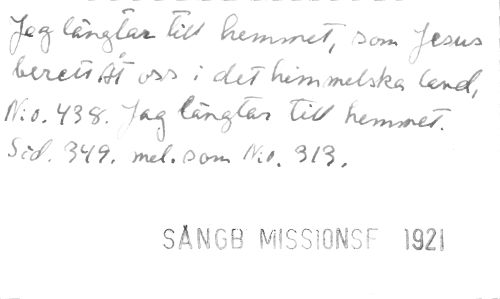 Jag längtar till hemmet, som Jesus
berett åt oss i det himmelska land,
N:o. 438. Jag längtar till hemmet.
Sid. 349. mel. som N:o. 313.
SÅNGB MISSIONSF 1921